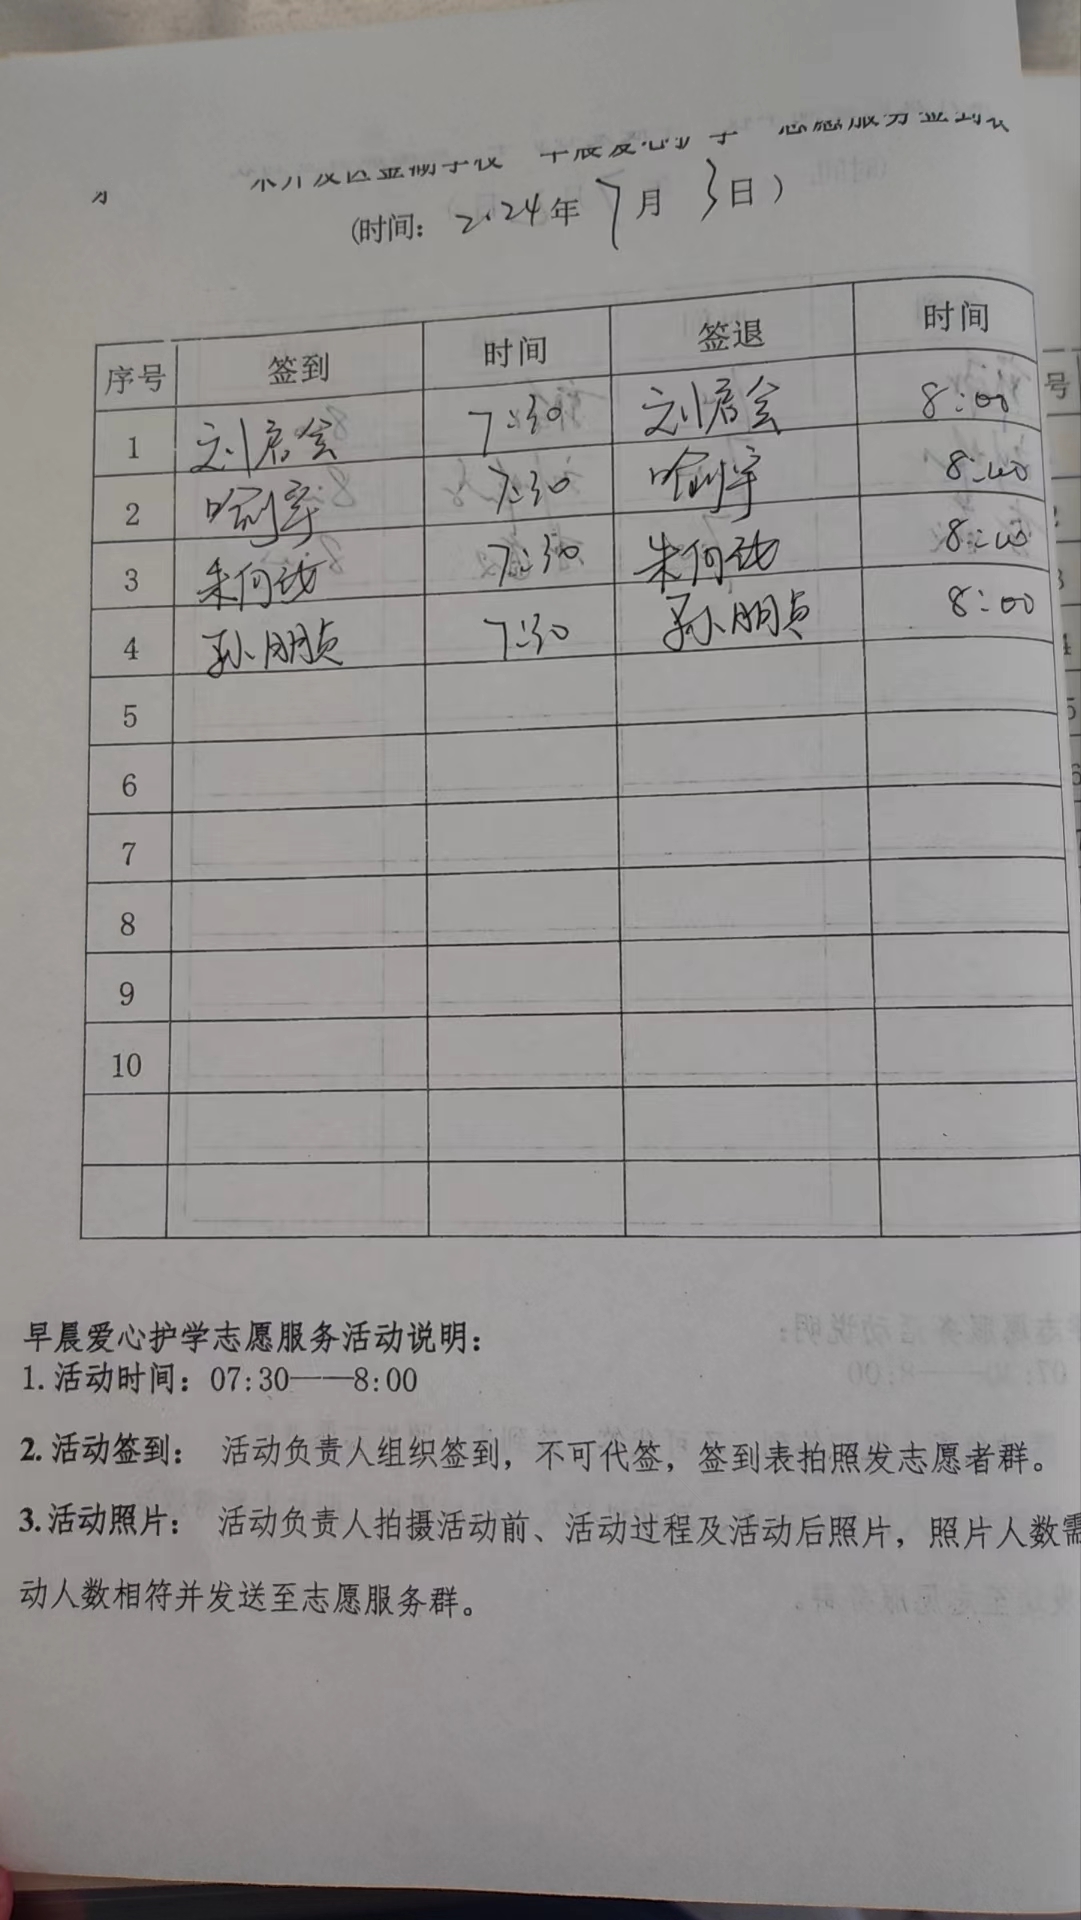 早晨爱心护学 志愿服务签到表
(时间: 2024年 7月 3日)
序号 签到 时间 签退 时间
1 刘启会 7:30 刘启会 8:00
2 7:30 8:00
3 朱何 7:30 朱何 8:00
4 孙朋贞 7:30 孙朋贞 8:00
5
6
7
8
9
10
早晨爱心护学志愿服务活动说明:
1. 活动时间: 07:30——8:00
2. 活动签到: 活动负责人组织签到, 不可代签, 签到表拍照发志愿者群。
3. 活动照片: 活动负责人拍摄活动前、活动过程及活动后照片, 照片人数需
动人数相符并发送至志愿服务群。